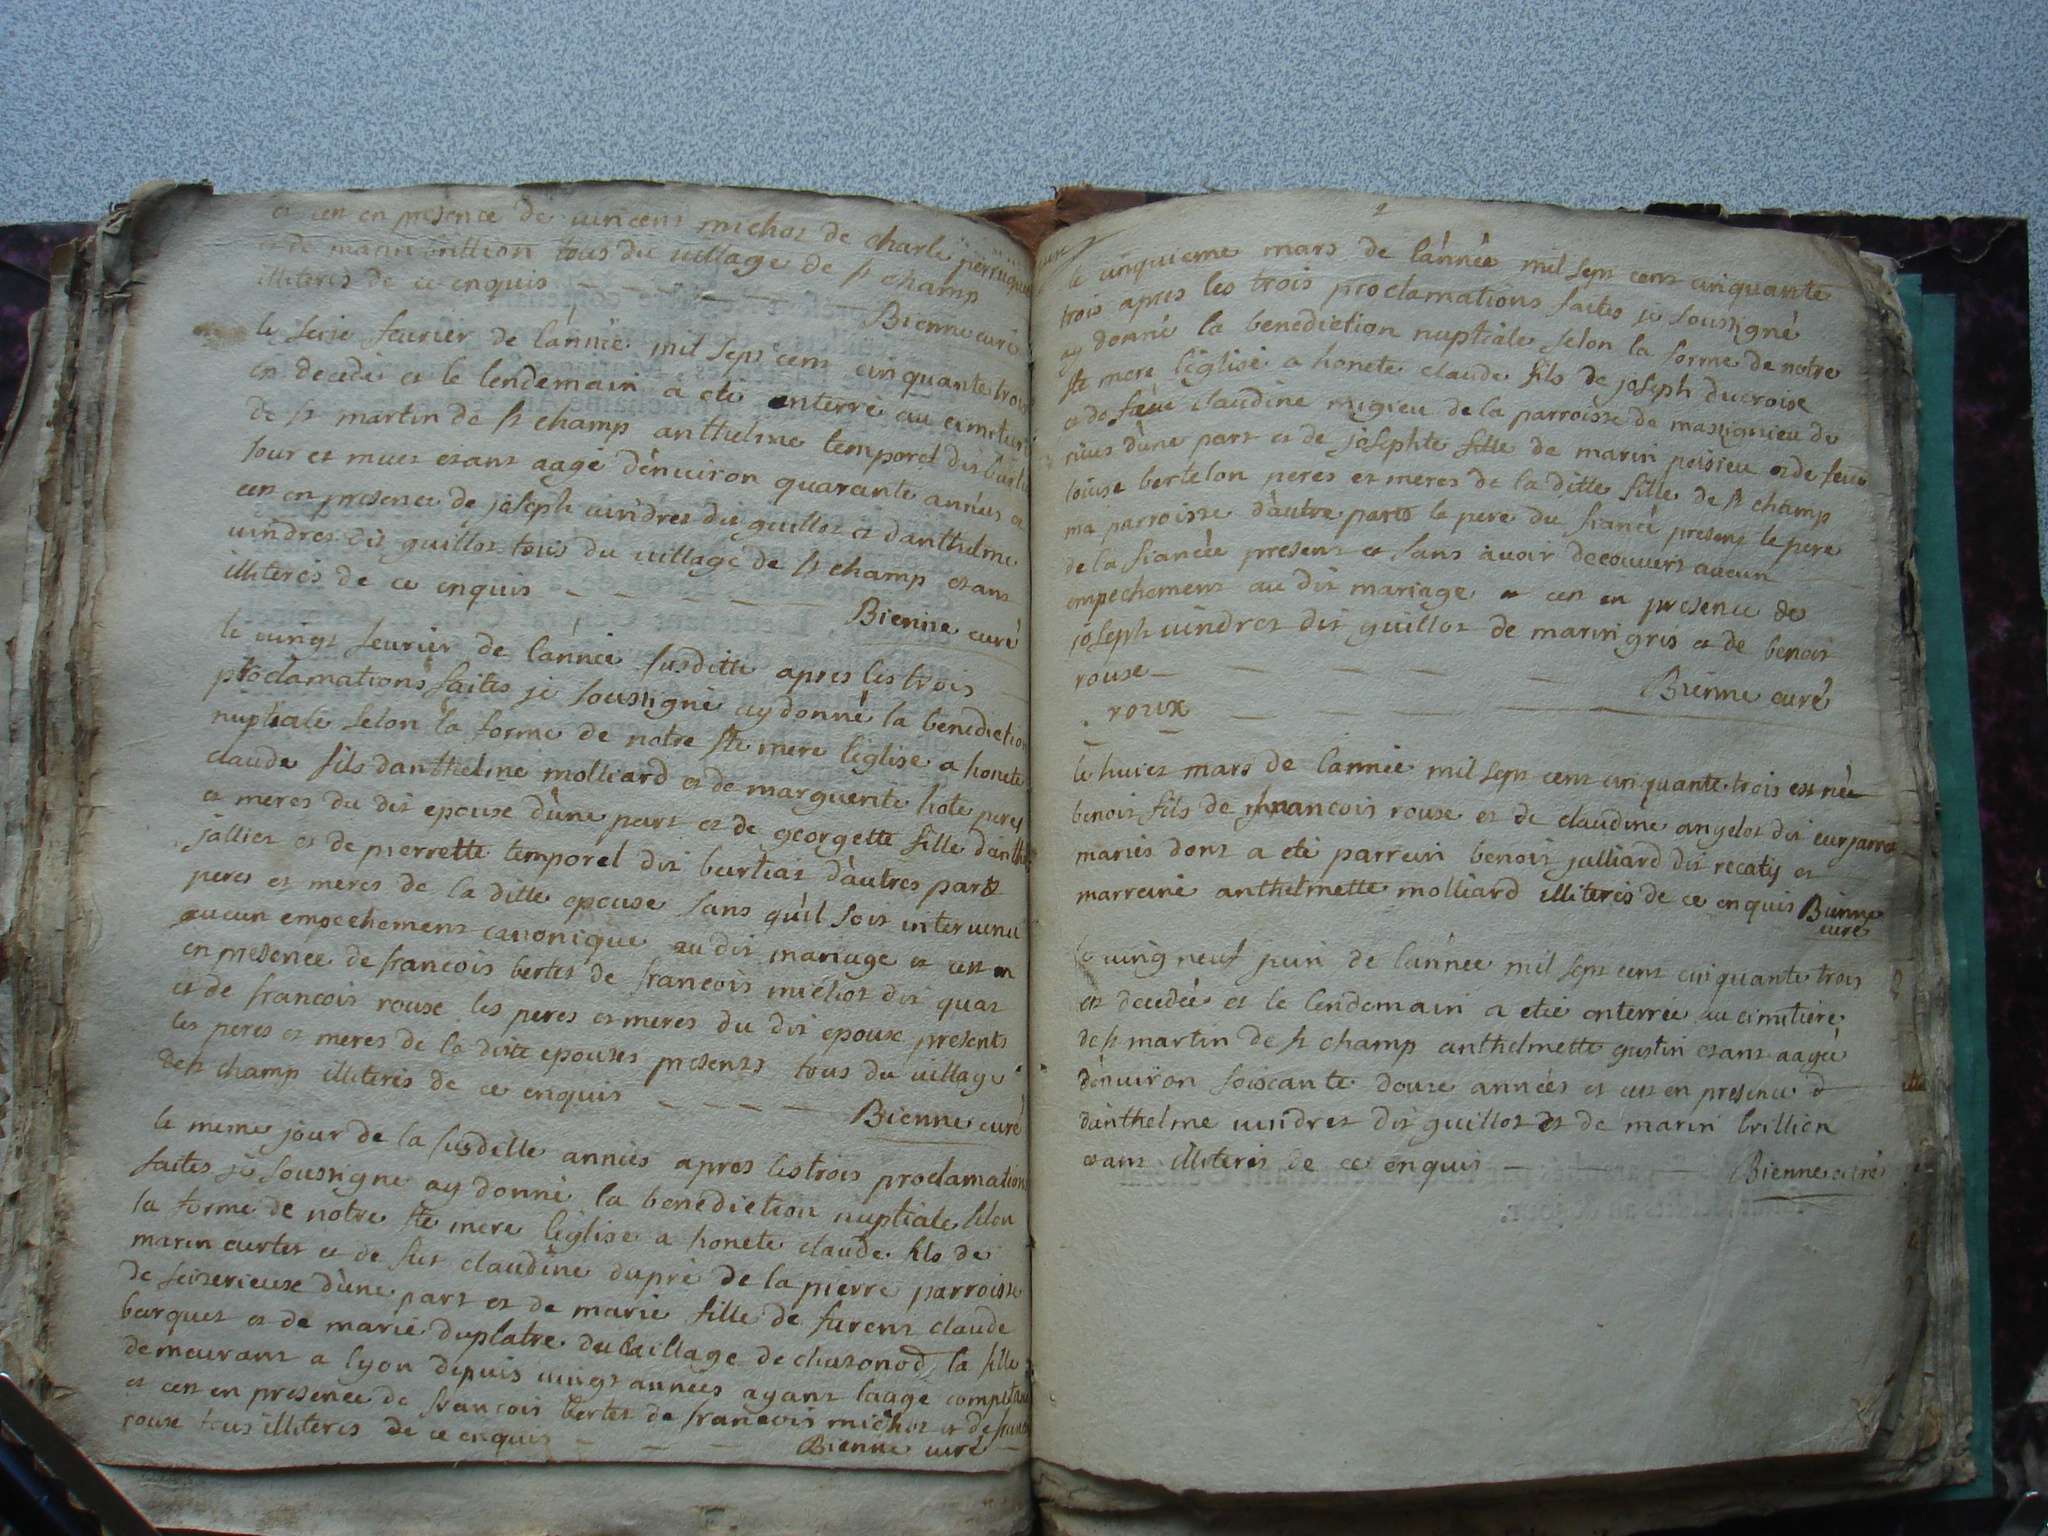 et cet en presence de vincent michot de charle perruquet
et de marin brillion tous du village de st champ
illiteres de ce enquis
Bienne curé
le seise feurier de lánnée mil sept cent cinquante trois
est decedé et le lendemain a eté enterré au cimitiere
de st martin de st champ anthelme temporel dit burtiat
sour et muet etant aagé dénuiron quarante années et
cet en presence de joseph uindret dit guillot et danthelme
uindret dit guillot tous du uillage de st champ etant
illiteres de ce enquis
Bienne curé
le uingt feurier de lánnée susditte apres les trois
proclamations faites je soussigné ay donné la benediction
nuptiale selon la forme de notre ste mere léglise a honete
claude fils danthelme molliard et de marguerite hote peres
et meres du dit epouse dúne part et de georgette fille danth
jalliet et de pierrette temporel dit burtiat dáutres part
peres et meres de la ditte epouse sans quíl soit interuenu
aucun empechement canonique au dit mariage et cet en
en presence de francois bertet de francois michot dit quat
et de francois rouse les peres et meres du dit epoux presents
les peres et meres de la ditte epouses presents tous du uillage
de st champ illiteres de ce enquis
Bienne curé
le meme jour de la susditte anniés apres les trois proclamations
faites je soussigne ay donné la benediction nuptiale selon
la forme de notre ste mere léglise a honete claude fils de
marin curtet et de fut claudine dupré de la pierre parroisse
de seizerieuse dúne part et de marie fille de furent claude
barquet et de marie duplatre du uillage de chazonod la fille
demeurant a lyon depuis uingt années ayant laage competant
et cet en presence de francois bertet de francois michot et de francois
rouse tous illiteres de ce enquis
Bienne curé
le cinquieme mars de lánnée mil sept cent cinquante
trois apres les trois proclamations faites je soussigné
ay donné la benediction nuptiale sélon la forme de notre
ste mere léglise a honete claude fils de joseph ducroise
et de feüe claudine migieu de la parroisse de massignieu de
riues dúne part et de josephte fille de marin peisieu et de feüe
louise bertelon peres et meres de la ditte fille de st champ
ma parroisse dáutre part le pere du fiancé present le pere
de la fiancée present et sans auoir decouuert aucun
empechement au dit mariage et cet en presence de
joseph uindret dit guillot de marin gris et de benoit
rouse
Bienne curé
roux
le huiet mars de lannée mil sept cent cinquante trois est née
benoit fils de francois rouse et de claudine angelot dit curjarret
mariés dont a eté parrein benoit julliard dit recaty et
marreine anthelmette molliard illiteres de ce enquis Bienne
curé
le uing neuf juin de lánnée mil sept cent cinquante trois
est decedée et le lendemain a etée enterrée au cimitiere
de st martin de st champ anthelmette gustin etant aagée
dénuiron soiscante douze années et cet en presence d
danthelme uindret dit guillot et de marin brillion
etant illiteres de ce enquis
Bienne curé